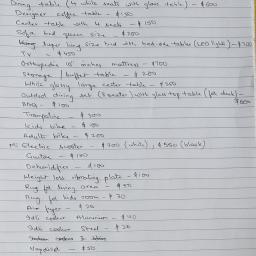 Dining table (4 while seats with glass table) - $600
Designer coffee table - $150
Center table with 4 seats - $150
Sofa bed queen size - $200
Super king size bed with bed-side tables (LED lights) - $700
TV - $450
Orthopedic 10" makes mattress - $100
Storage / buffet table - $200
White glossy large center table - $250
Outdoor dining set (8 seater) with glass top table (for deck) - $800
BBQ - $100
Trampoline - $200
Kids bike - $50
Adult bike - $200
Mi Electric scooter - $700 (white), $550 (black)
Guitar - $100
Dehumidifier - $100
Weight loss vibrating plate - $100
Rug for living area - $50
Rug for kids room - $70
Air fryer - $50
Idli cooker Aluminium - $40
Idli cooker Steel - $20
- $50